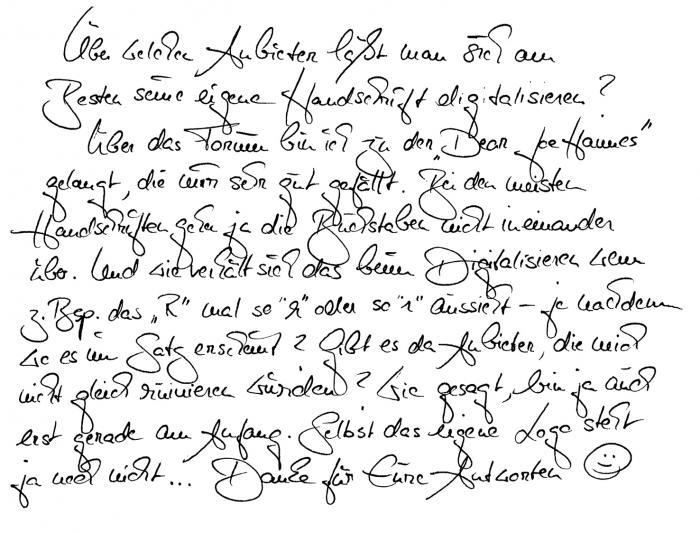 Über welchen Anbieter läßt man sich am
Besten seine eigene Handschrift digitalisieren?
Über das Forum bin ich zu der „Dear Joe Haines"
gelangt, die mir sehr gut gefällt. Bei den meisten
Handschriften gehen ja die Buchstaben nicht ineinander
über. Und wie verhält sich das beim Digitalisieren wenn
z. Bsp. das „R" mal so "r" oder so "r" aussieht – je nachdem
wo es im Satz erscheint? Gibt es da Anbieter, die mich
nicht gleich ruinieren würden? Wie gesagt, bin ja auch
erst gerade am Anfang. Selbst das eigene Logo steht
ja noch nicht... Danke für Eure Antworten